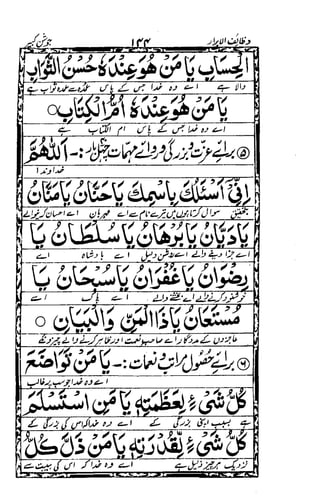 وظائف الابرار ۱۴۴ جوشن کبیر
الْحِسَابِ يَا مَنْ هُوَ عِنْدَهُ حُسْنُ الثَّوَابِ
والا ہے اے وہ خدا جس کے پاس عمدہ سے عمدہ ثواب ہے
يَا مَنْ هُوَ عِنْدَهُ أُمُّ الْكِتَابِ
اے وہ خدا جس کے پاس ام الکتاب ہے
۵ برائے عزت و بزرگی و روائے مہمات چہل بار:- اَللّٰهُمَّ
خداوندا
اِنِّيْ اَسْئَلُكَ بِاسْمِكَ يَا حَنَّانُ يَا مَنَّانُ
بتحقیق سوال کرتا ہوں تیرے نام سے اے مہربان اے احسان کرنیوالے
يَا دَيَّانُ يَا بُرْهَانُ يَا سُلْطَانُ يَا
اے جزا دینے والے اے روشن دلیل اے بادشاہ اے
رِضْوَانُ يَا غُفْرَانُ يَا سُبْحَانُ يَا
خوشنود کرنے والے اے بخشنے والے اے پاک اے
مُسْتَعَانُ يَا ذَا الْمَنِّ وَالْبَيَانِ
عاجزوں کے مددگار اے صاحب نعمت اور ظاہر کرنے والے چیزوں کے
۶ برائے حصول مراتب و نعمات:- يَا مَنْ تَوَاضَعَ
اے وہ خدا جو سب پر غالب
كُلُّ شَيْءٍ لِعَظَمَتِهِ يَا مَنِ اسْتَسْلَمَ
ہے بسبب اپنی بزرگی کے اے وہ خدا کہ اس کی بزرگی کے
كُلُّ شَيْءٍ لِقُدْرَتِهِ يَا مَنْ ذَلَّ كُلُّ
نزدیک ہر چیز ذلیل ہے اے وہ خدا کہ اس کی ہیبت سے